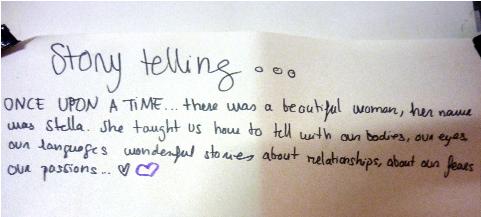 Story telling...
ONCE UPON A TIME... there was a beautiful woman, her name
was Stella. She taught us how to tell with our bodies, our eyes
our languages wonderful stories about relationships, about our fears
our passions... ♡ ♡